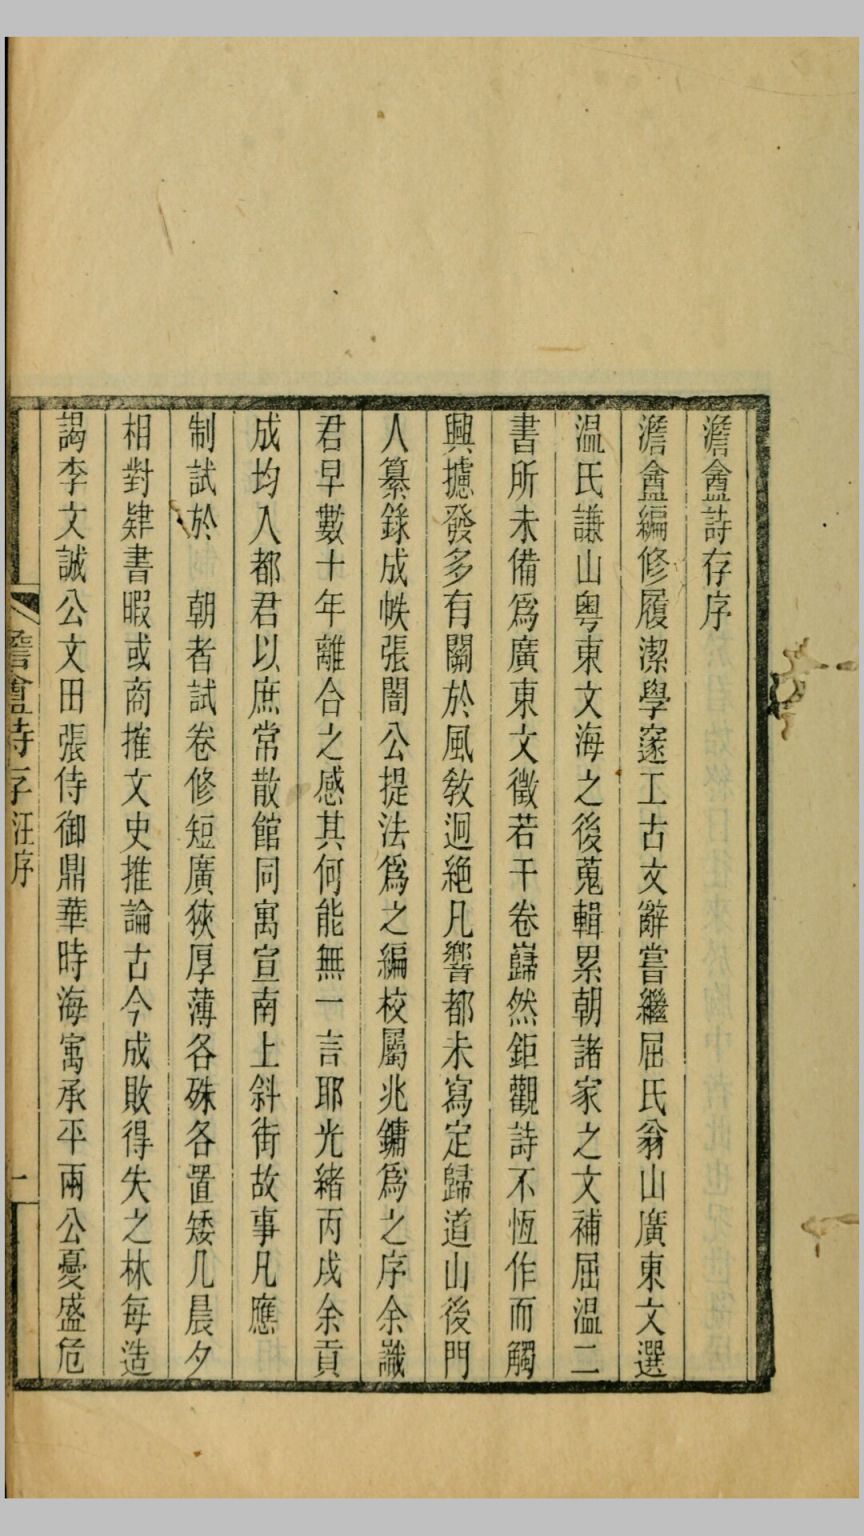 澹盦詩存序
澹盦編修履潔學邃工古文辭嘗繼屈氏翁山廣東文選
温氏謙山粤東文海之後蒐輯累朝諸家之文補屈温二
書所未備爲廣東文徵若干卷巋然鉅觀詩不恆作而觸
興攄發多有關於風敎迥絶凡響都未寫定歸道山後門
人纂錄成帙張闇公提法爲之編校屬兆鏞爲之序余識
君早數十年離合之感其何能無一言耶光緒丙戌余貢
成均入都君以庶常散館同寓宣南上斜街故事凡應
制試於　朝者試卷修短廣狹厚薄各殊各置矮几晨夕
相對肄書暇或商搉文史推論古今成敗得失之林每造
謁李文誠公文田張侍御鼎華時海寓承平兩公憂盛危
澹盦詩存汪序
一